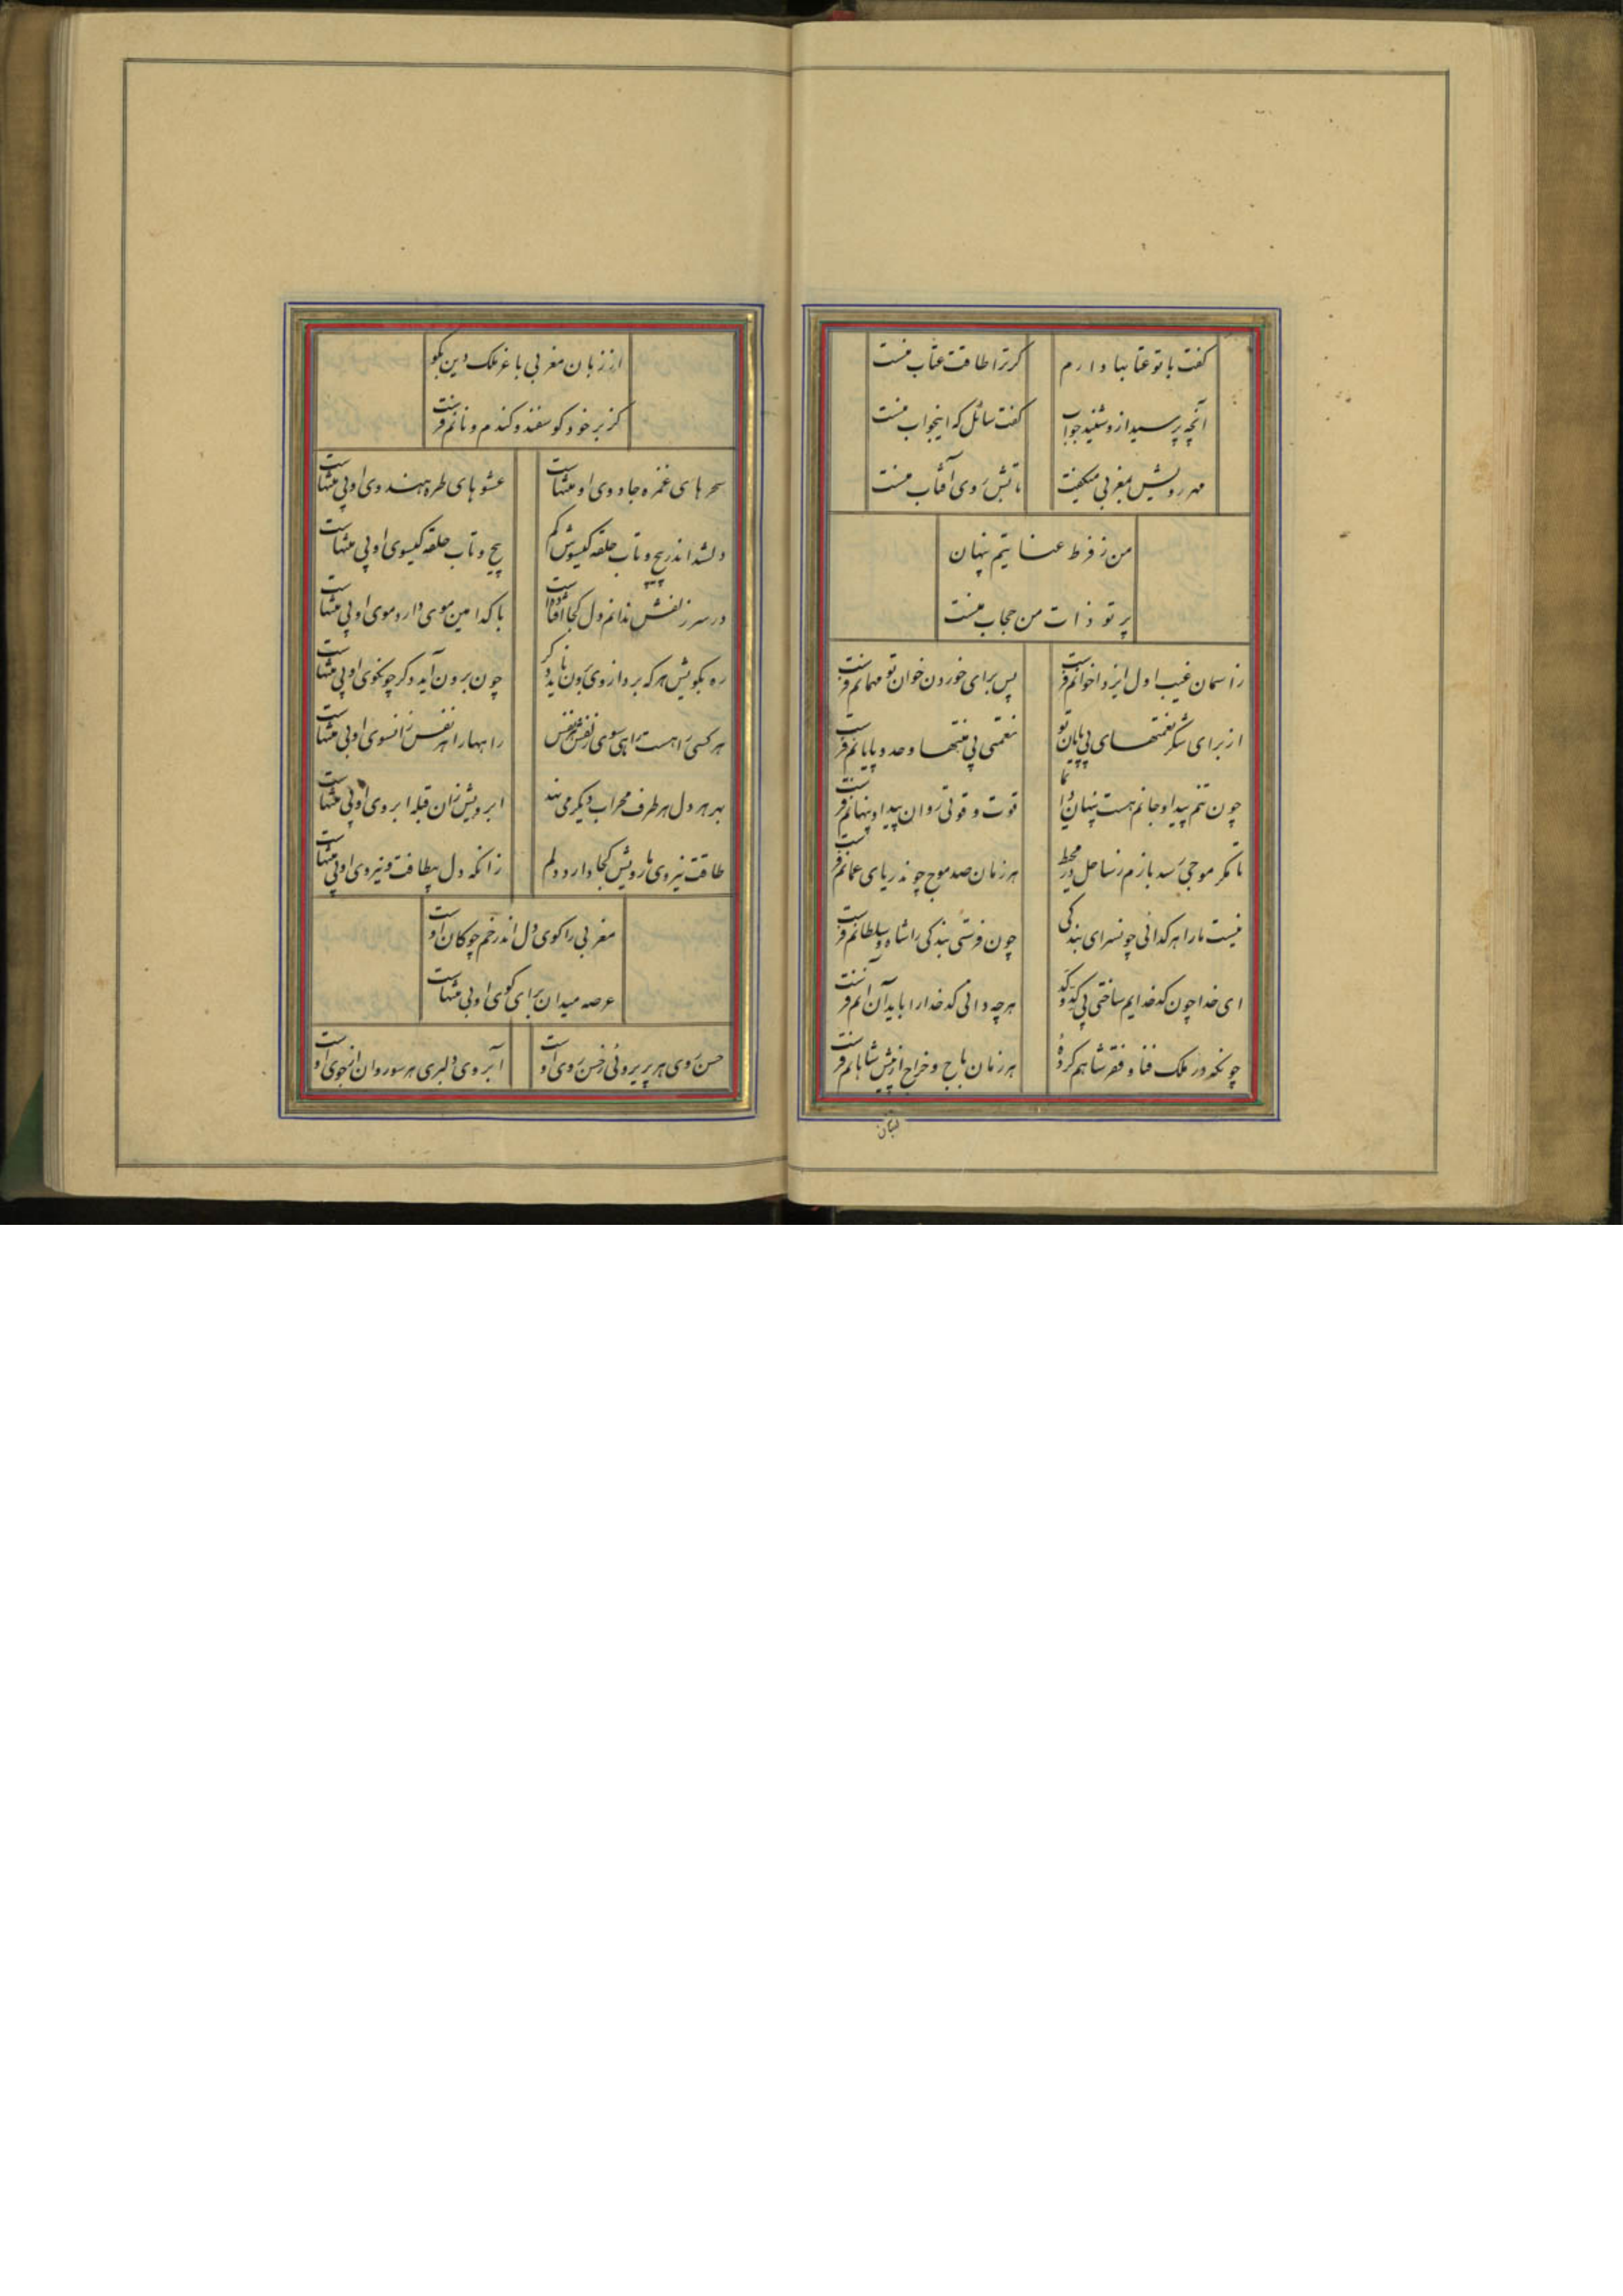 گفت با تو عتابها دارم
گر ترا طاقت عتاب منست
آنچه پرسید ازو شنید جواب
گفت سائل که اینجواب منست
مهر رویش بمغربی میگفت
تابش روی آفتاب منست
من ز فرط عنایتم پنهان
پرتو ذات من حجاب منست
ز اسمان غیب اول ایزدا خوانم فرست
پس برای خوردن خوان تو مهمانم فرست
از برای شکر نعمتهای بی پایان تو
نعمتی بی منتها و حد و پایانم فرست
چون تنم پیدا و جانم هست پنهان دائما
قوت و قوتی روان پیدا و پنهانم فرست
تا مگر موجی رسد بازم ز ساحل در محیط
هر زمان صد موج چون دریای عمانم فرست
نیست ما را هر گدائی چون سرای بندگی
چون فرستی بندگی را شاه و سلطانم فرست
ای خدا چون کدخدایم ساختی بی کد و کد
هر چه دانی کدخدا را باید آن آنم فرست
چونکه در ملک فنا و فقر شاهم کردهٔ
هر زمان باج و خراج از پیش شاهانم فرست
از زبان مغربی با غز ملک دین بگو
کز بر خود گوسفند و گندم و نانم فرست
سحرهای غمزه جادوی او بیمنتهاست
عشوهای طره هندوی او بی منتهاست
دل شد اندر پیچ و تاب حلقه گیسوش گم
پیچ و تاب حلقه گیسوی او بی منتهاست
در سر زلفش ندانم دل کجا افتاده است
با کدامین موی دارد موی او بی منتهاست
ره بکویش هر که برد از وی برون ناید دگر
چون برون آید دگر چون کوی او بی منتهاست
هر کسی را هست راهی سوی
راهها را هر نفس زانسوی او بی منتهاست
بهر هر دل هر طرف محراب دیگر می نهد
ابرویش زان قبله ابروی او بی منتهاست
طاقت نیروی بازویش کجا دارد دلم
زانکه دل بیطاقت و نیروی او بی منتهاست
مغربی را گوی دل اندر خم چوگان اوست
عرصه میدان برای گوی او بی منتهاست
حسن روی هر پریروئی ز حسن روی اوست
آبروی دلبری هر سو روان از جوی اوست